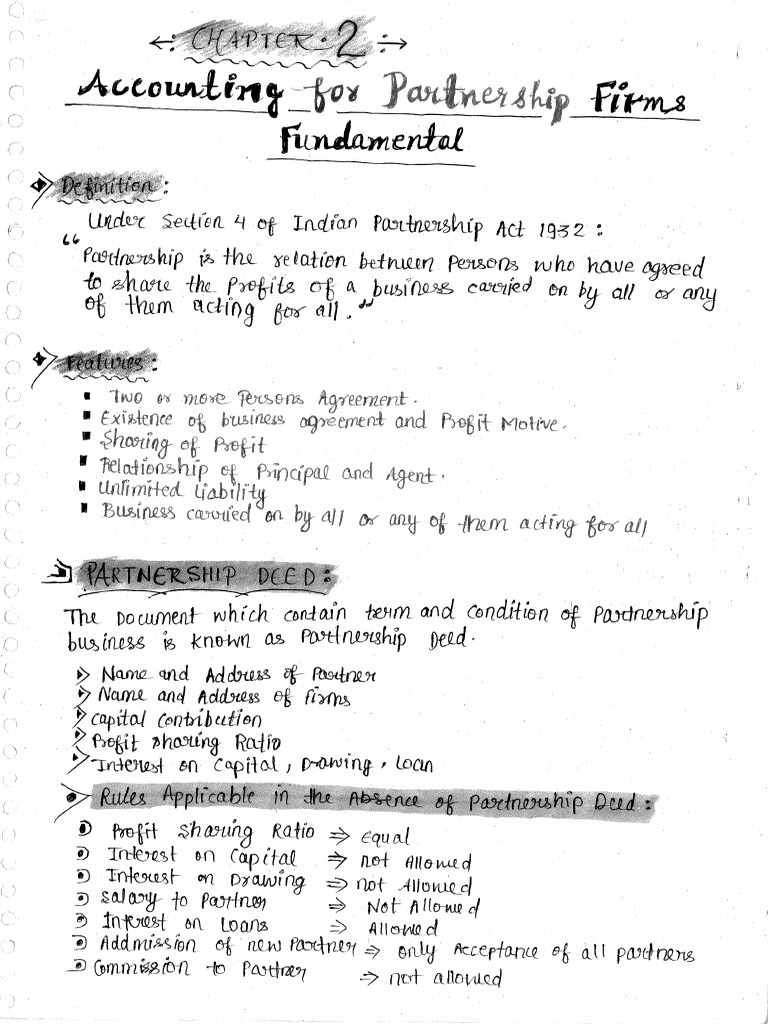 CHAPTER : 2
Accounting for Partnership Firms
Fundamental
Definition :
Under Section 4 of Indian Partnership Act 1932 :
"Partnership is the relation between Persons who have agreed
to share the Profits of a business carried on by all or any
of them acting for all."
Features :
Two or more Persons Agreement.
Existence of business agreement and Profit Motive.
Sharing of Profit
Relationship of Principal and Agent.
Unlimited Liability
Business carried on by all or any of them acting for all
PARTNERSHIP DEED :
The Document which contain term and condition of Partnership
business is known as Partnership Deed.
Name and Address of Partner
Name and Address of firms
Capital Contribution
Profit sharing Ratio
Interest on Capital, Drawing, Loan
Rules Applicable in the Absence of Partnership Deed :
Profit Sharing Ratio ⇒ equal
Interest on Capital ⇒ not Allowed
Interest on Drawing ⇒ not Allowed
Salary to Partner ⇒ Not Allowed
Interest on Loans ⇒ Allowed
Addmission of new Partner ⇒ only Acceptance of all partners
Commission to Partner ⇒ not allowed